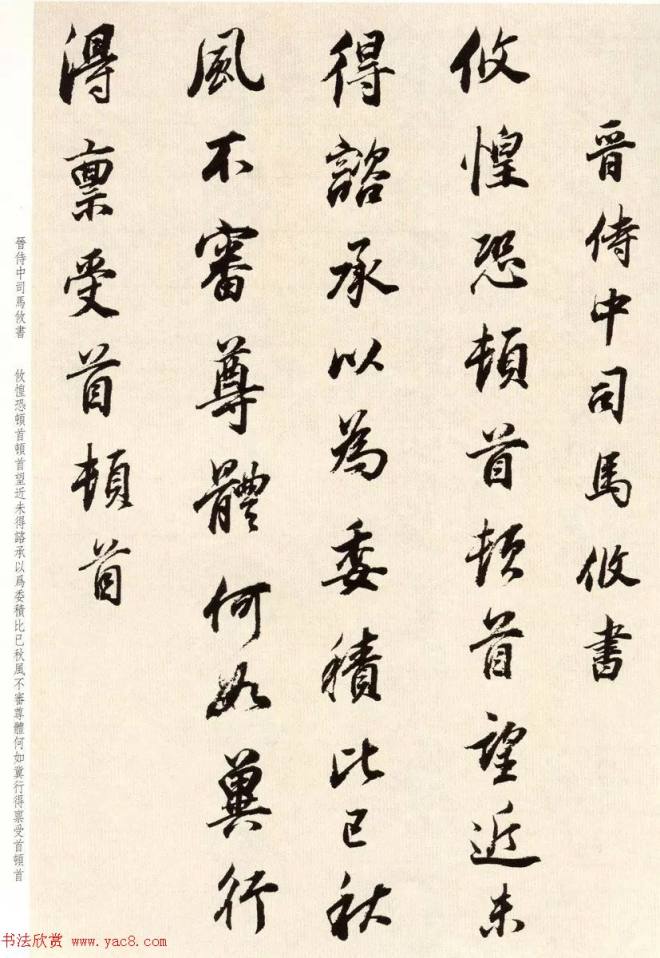 晉侍中司馬攸書
攸惶恐頓首頓首望近未
得諮承以為委積比已秋
風不審尊體何如冀行
得稟受首頓首
晉侍中司馬攸書　攸惶恐頓首頓首望近未得諮承以爲委積比已秋風不審尊體何如冀行得稟受首頓首
书法欣赏 www.yac8.com